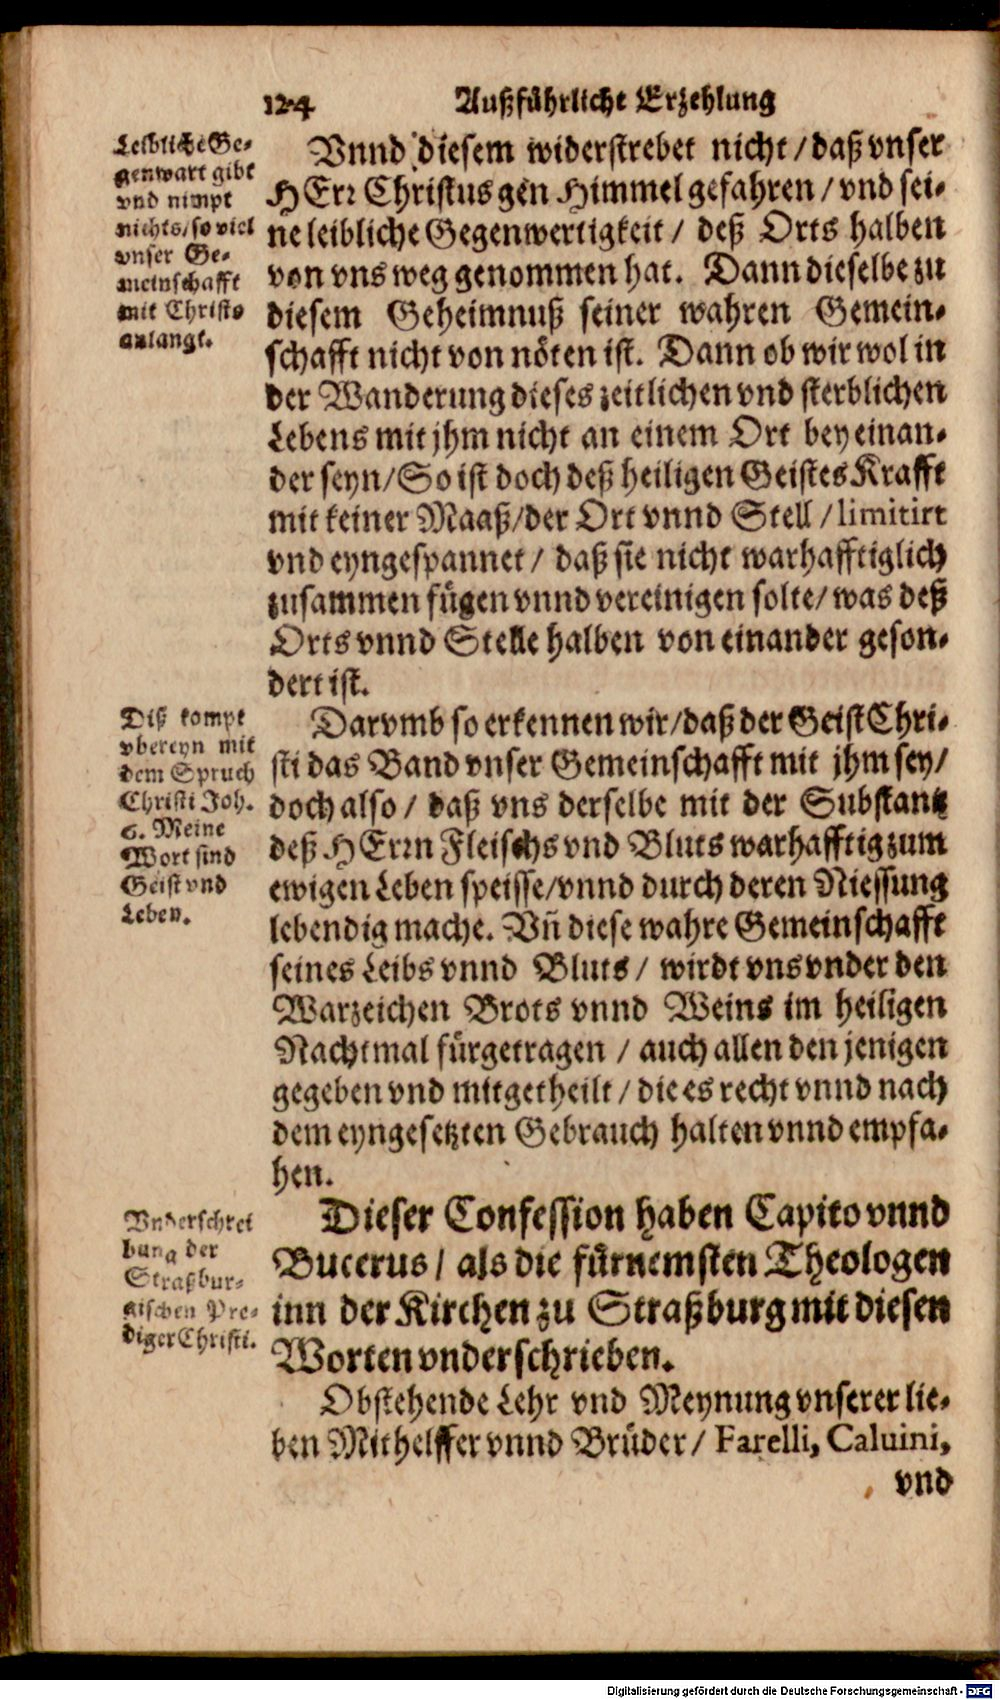 124 Außführliche Erzehlung
Leibliche Ge-
genwart gibt
vnd nimpt
nichts/so viel
vnser Ge-
meinschafft
mit Christo
anlangt.
Vnnd diesem widerstrebet nicht / daß vnser
HErr Christus gen Himmel gefahren / vnd sei-
ne leibliche Gegenwertigkeit / deß Orts halben
von vns weg genommen hat. Dann dieselbe zu
diesem Geheimnuß seiner wahren Gemein-
schafft nicht von nöten ist. Dann ob wir wol in
der Wanderung dieses zeitlichen vnd sterblichen
Lebens mit jhm nicht an einem Ort bey einan-
der seyn/So ist doch deß heiligen Geistes Krafft
mit keiner Maaß/der Ort vnnd Stell / limitirt
vnd eyngespannet / daß sie nicht warhafftiglich
zusammen fügen vnnd vereinigen solte/ was deß
Orts vnnd Stelle halben von einander geson-
dert ist.
Diß kompt
vbereyn mit
dem Spruch
Christi Joh.
6. Meine
Wort sind
Geist vnd
Leben.
Darvmb so erkennen wir/daß der Geist Chri-
sti das Band vnser Gemeinschafft mit jhm sey/
doch also / daß vns derselbe mit der Substantz
deß HErrn Fleischs vnd Bluts warhafftig zum
ewigen Leben speisse/vnnd durch deren Niessung
lebendig mache. Vñ diese wahre Gemeinschafft
seines Leibs vnnd Bluts / wirdt vns vnder den
Warzeichen Brots vnnd Weins im heiligen
Nachtmal fürgetragen / auch allen den jenigen
gegeben vnd mitgetheilt / die es recht vnnd nach
dem eyngesetzten Gebrauch halten vnnd empfa-
hen.
Vnderschrei
bung der
Straßbur-
gischen Pre-
diger Christi.
Dieser Confession haben Capito vnnd
Bucerus / als die fürnemsten Theologen
inn der Kirchen zu Straßburg mit diesen
Worten vnderschrieben.
Obstehende Lehr vnd Meynung vnserer lie-
ben Mithelffer vnnd Brüder / Farelli, Caluini,
vnd
Digitalisierung gefördert durch die Deutsche Forschungsgemeinschaft - DFG